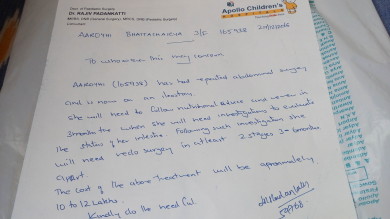 Dept. of Paediatric Surgery
Dr. RAJIV PADANKATTI
Consultant
Apollo Children's
HOSPITALS
AAROTHI BHATTACHARYA 3/F 165938
To whomsoever this may concern
AAROTHI (165938) has had repeated abdominal surgery
and is now on an ileostomy.
She will need to follow nutritional advice and even in
months later she will need investigating to evaluate
the status of her intestine. Following such investigation she
will need redo surgery in atleast 2 stages 3 months
apart.
The cost of the above treatment will be approximately
10 to 12 Lakhs.
Kindly do the needful.
59768